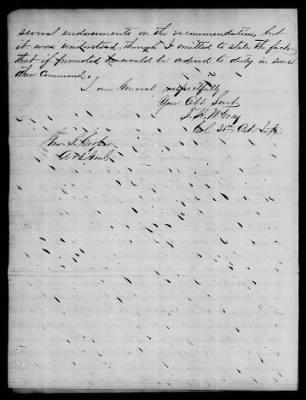 several endorsements on the recommendation, but
it was understood, though I omitted to state the fact
that if promoted he would be ordered to duty in some
other Command.
I am General respectfully
Your Obt Servt
Col
Genl S. Cooper